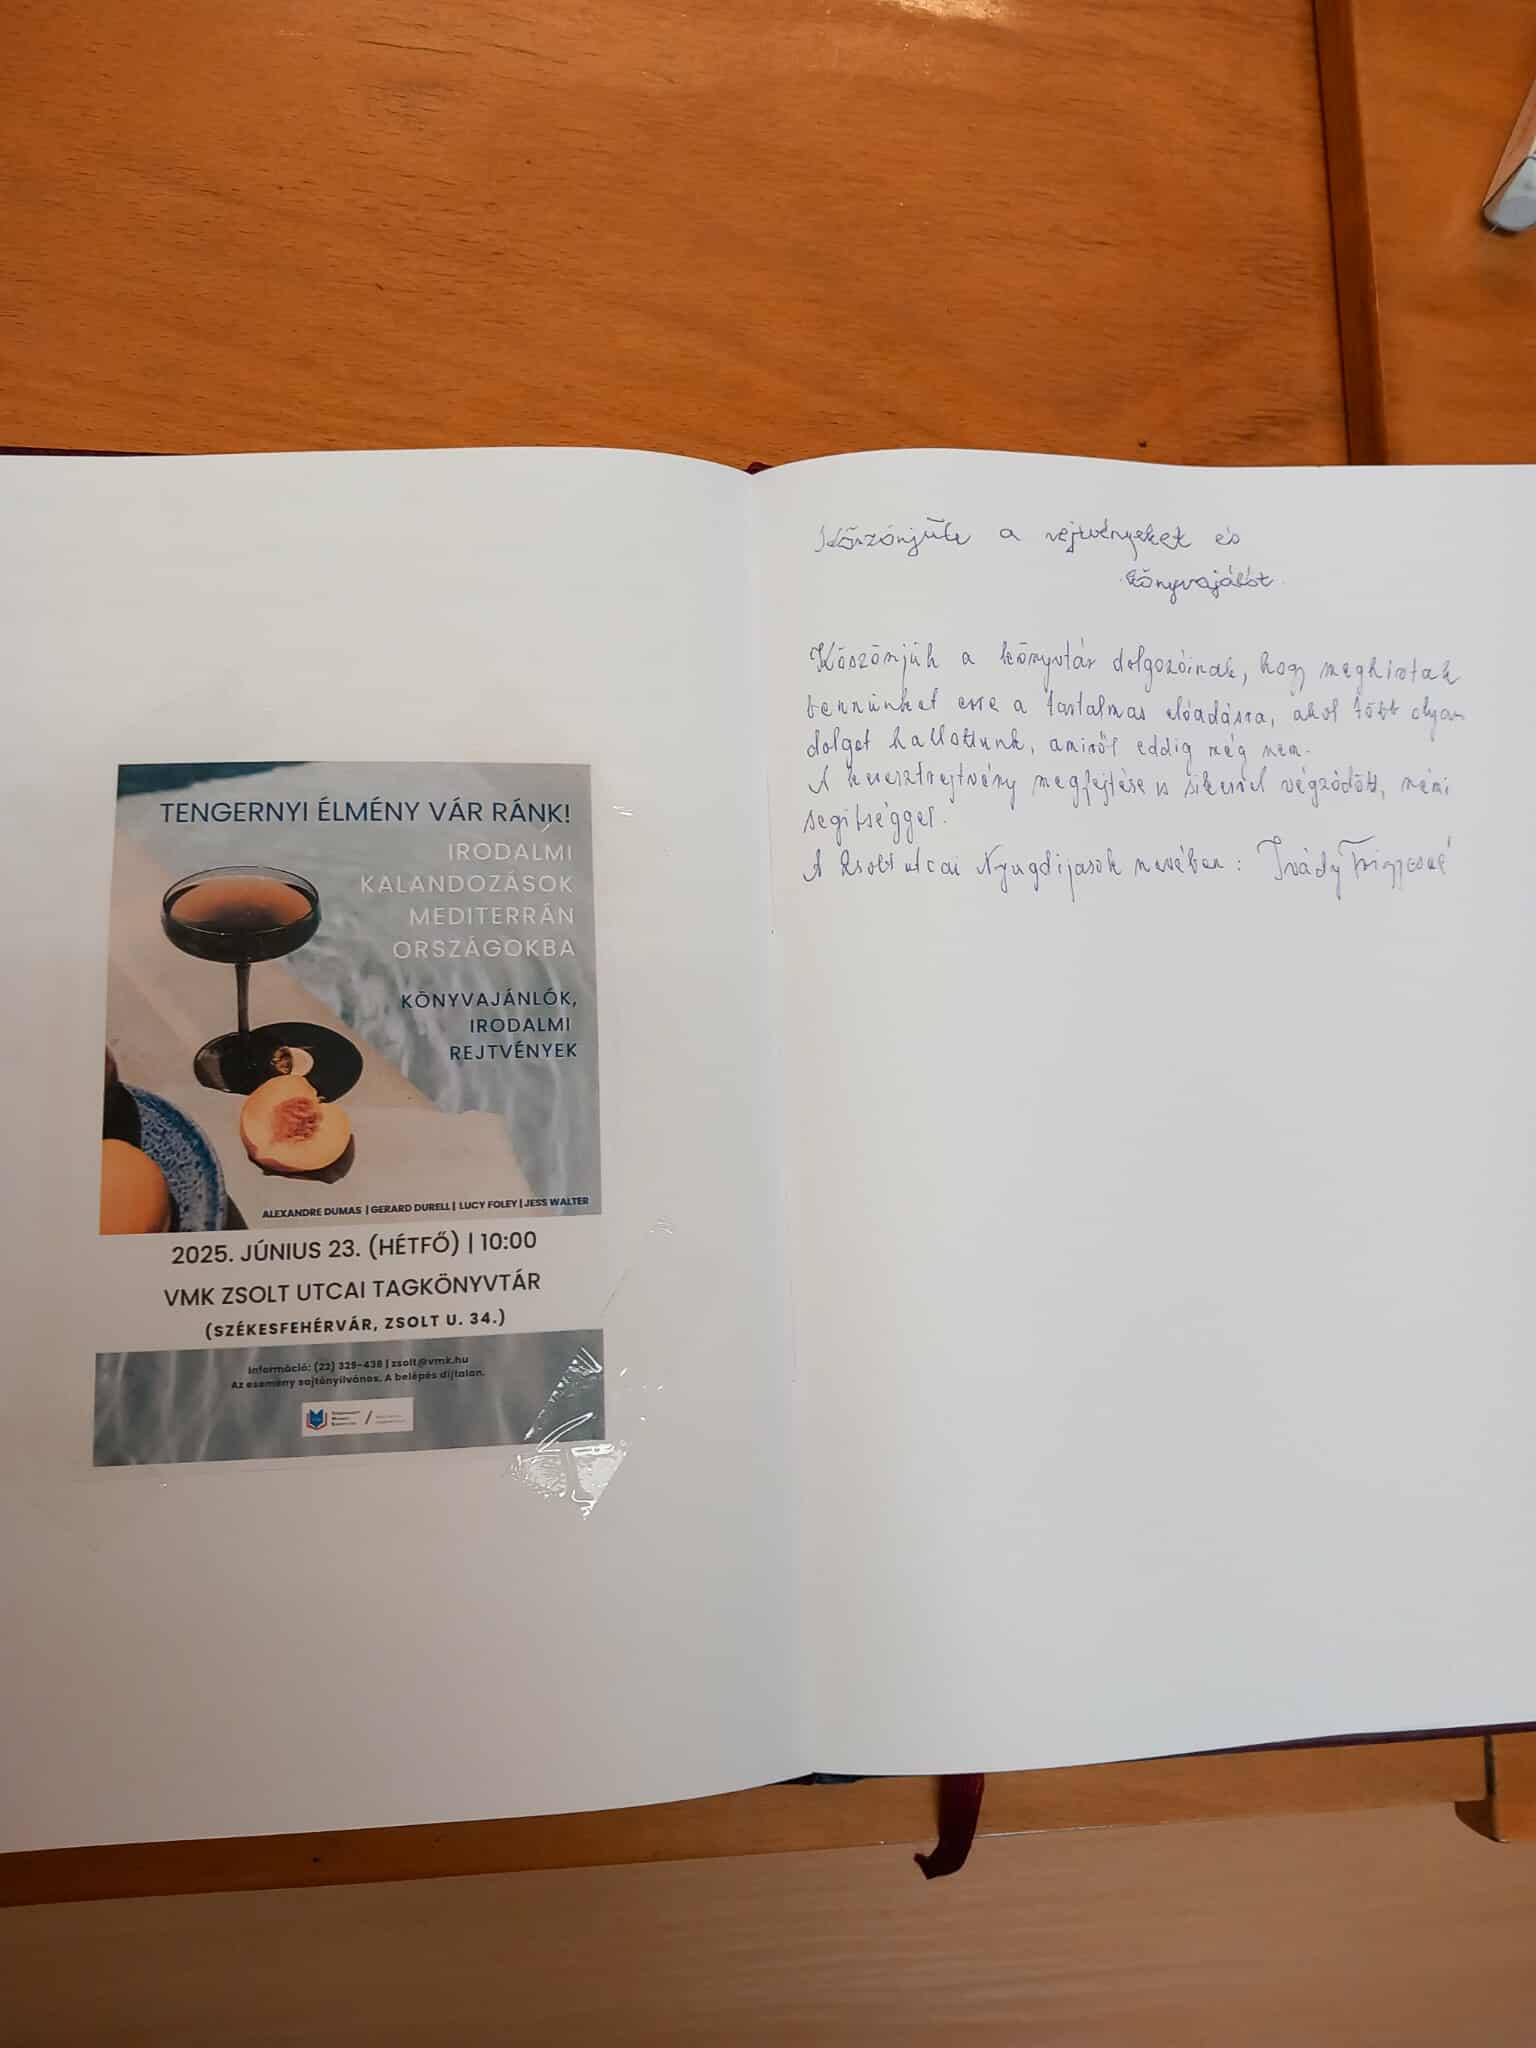 TENGERNYI ÉLMÉNY VÁR RÁNK!
IRODALMI
KALANDOZÁSOK
MEDITERRÁN
ORSZÁGOKBA
KÖNYVAJÁNLÓK,
IRODALMI
REJTVÉNYEK
ALEXANDRE DUMAS | GERARD DURELL | LUCY FOLEY | JESS WALTER
2025. JÚNIUS 23. (HÉTFŐ) | 10:00
VMK ZSOLT UTCAI TAGKÖNYVTÁR
(SZÉKESFEHÉRVÁR, ZSOLT U. 34.)
Információ: (22) 325-438 | zsolt@vmk.hu
Az esemény sajtónyilvános. A belépés díjtalan.
Köszönjük a rejtvényeket és
Köszönjük a könyvtár dolgozóinak, hogy meghívtak
bennünket erre a tartalmas előadásra, ahol több olyan
dolgot hallottunk, amiről eddig még nem.
A keresztrejtvény megfejtése is sikerrel végződött, némi
segítséggel.
A Zsolt utcai Nyugdíjasok nevében: Ivády Frigyesné